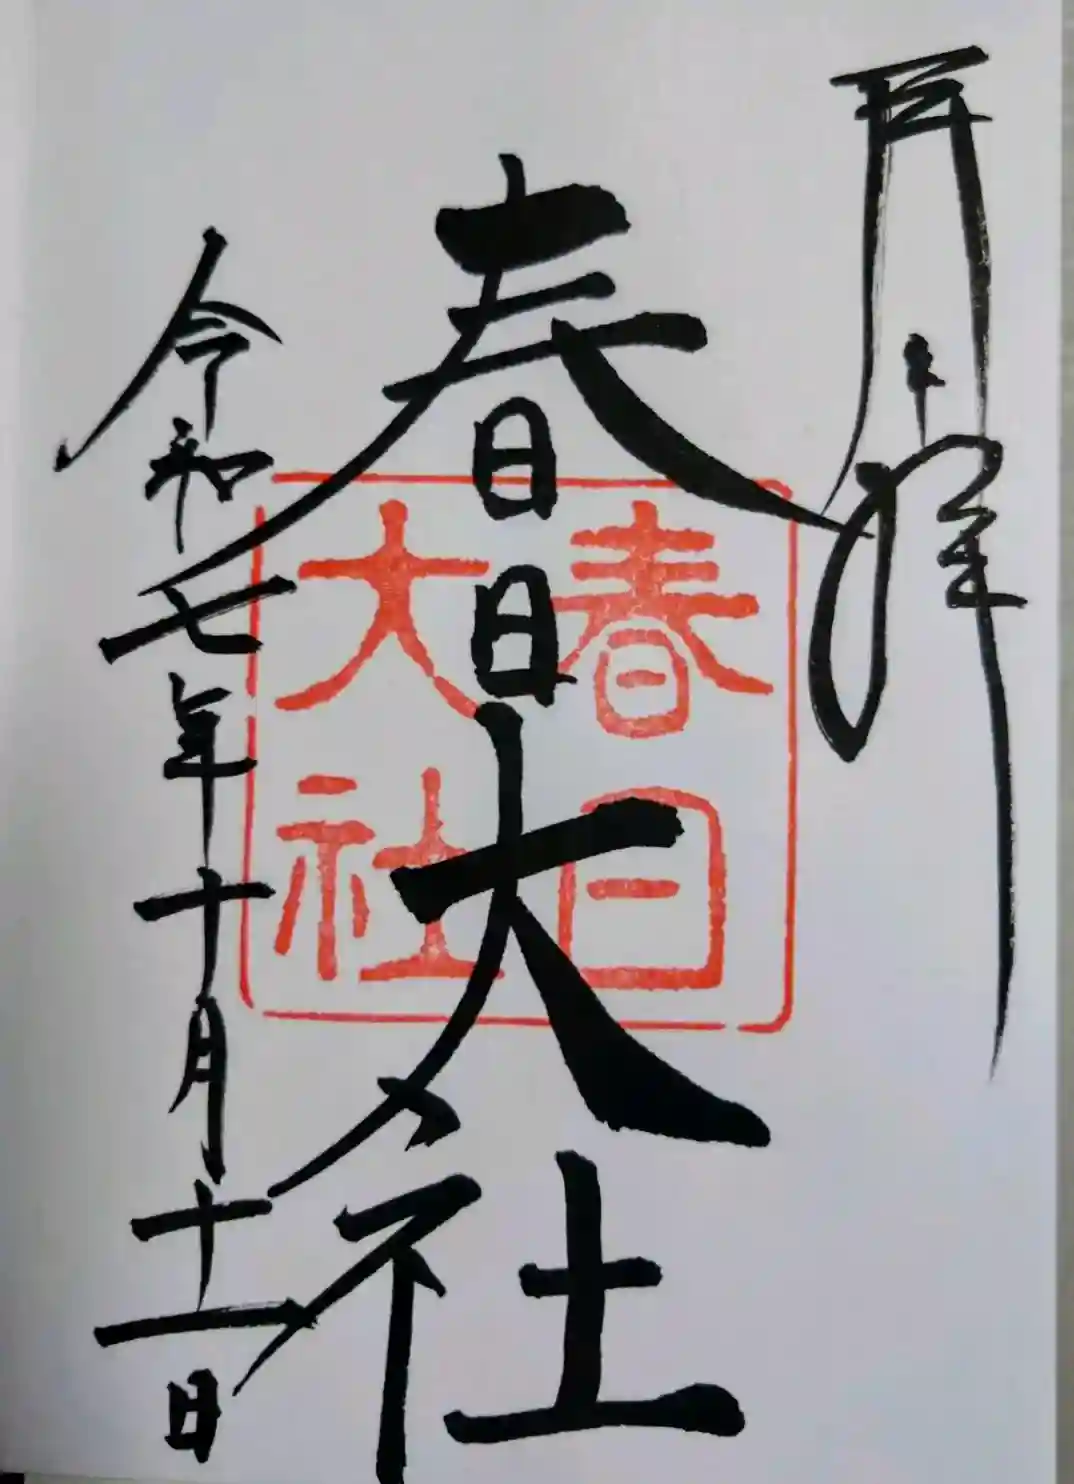 奉拝
春日大社
令和七年十月十一日
春日
大社